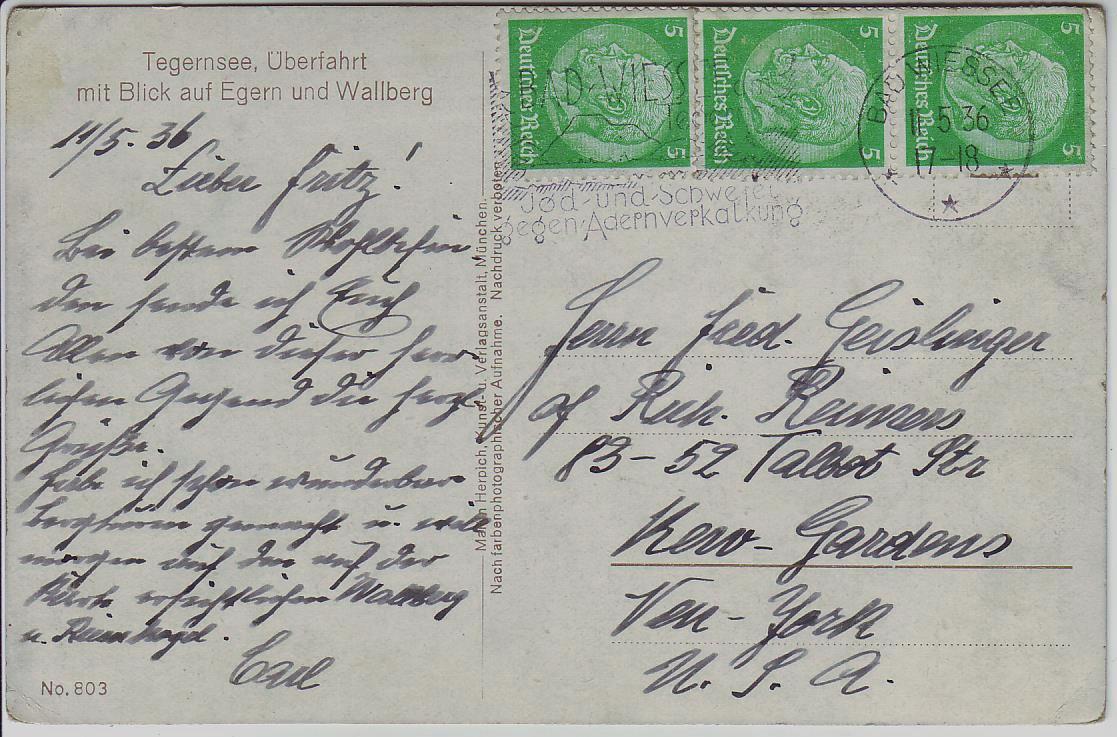 Tegernsee, Überfahrt
mit Blick auf Egern und Wallberg
11/5. 36
Lieber Fritz!
Bei bestem Wohlbefin
den sende ich Euch
Allen von dieser herr-
lichen Gegend die herzl.
Grüße.
Habe ich schon wunderbare
Bergturen gemacht u. will
morgen auf den auf der
Karte ersichtlichen Wallberg
u. Riesenkogel.
Carl
No. 803
Martin Herpich, Kunst- u. Verlagsanstalt, München.
Nach farbenphotographischer Aufnahme. Nachdruck verboten.
Deutsches Reich 5 5
Deutsches Reich 5 5
Deutsches Reich 5 5
BAD-WIESSEE
Jod-und-Schwefel
gegen Adernverkalkung
BAD WIESSEE
11.5.36
17-18
Herrn Fred. Geislinger
of Rich. Reimers
83-52 Talbot Str
Kew-Gardens
Neu-York
U. S. A.